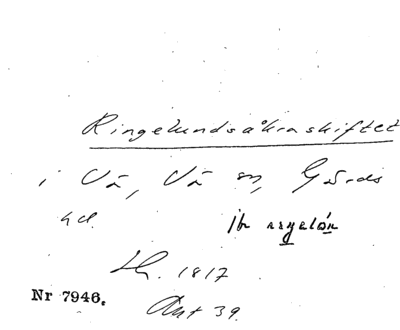 Ringelundsåkraskiftet
i Vä, Vä sn, Gärds
hd.
Lh. 1817
Nr 7946.
Ant 39.